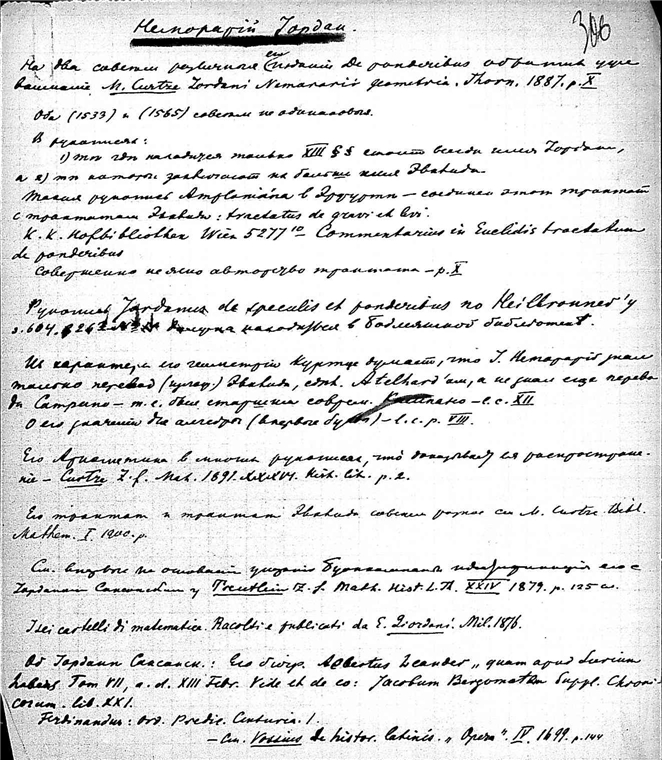 306
Неморарій Іордан.
На два совсем различные издания De ponderibus обратил уже
внимание M. Curtze Iordani Nemorarii geometria. Thorn. 1887. p. X
Оба (1533) и (1565) совсем не одинаковы.
В рукописях:
1) те где находится только XIII §§ стоит всегда имя Iордан,
а 2) те
имя Эвклида
рукопись Amploniana в Эрфурте – соединен этот трактат
с трактатом Эвклида: tractatus de gravi et levi.
K. K. Hofbibliothek Wien 5277 10 – Commentarius in Euclidis tractatum
de ponderibus
Совершенно неясно авторство трактата – p. X
Рукопись Jordanus de speculis et ponderibus по Heilbronner'у
s. 604. находиться в библиотеке.
Из характера его геометрии Куртце думает, что I. Неморарій знал
только перевод Эвклида, сдел. Atelhard'ом, а не знал еще перево-
да Campano – т.е. был старшим соврем. Кампано – l.c. XII
О его значении для алгебры (впервые буквы) – l.c. p. VIII.
Его Арифметика в многих рукописях, что доказывает ея распростране-
ние – Curtze Z. f. Mat. 1891. XXXVI. Hist. lit. p. 2.
Его трактат и трактат Эвклида совсем разное см. M. Curtze. Bibl.
Mathem. I 1900. p.
См. впервые на основании указаний идентификация его с
Iорданом Саксонским у Treutlein Z. f. Math. Hist. L. Th. XXIV 1879. p. 125
I sei cartelli di matematica. Racolti e publicati da E. Giordani. Mil. 1876.
Об Iордане Саксонск.: Его Albertus Leander „quam apud Surium
habens Tom VII, a. d. XIII Febr. Vide et de eo: Jacobum Bergomatem Suppl. Chroni-
corum. lib. XXI.
Ferdinandus: Ord. Predic. Centuria. 1.
– См. Vossius de histor. latinis. „Opera". IV. 1699. p. 144